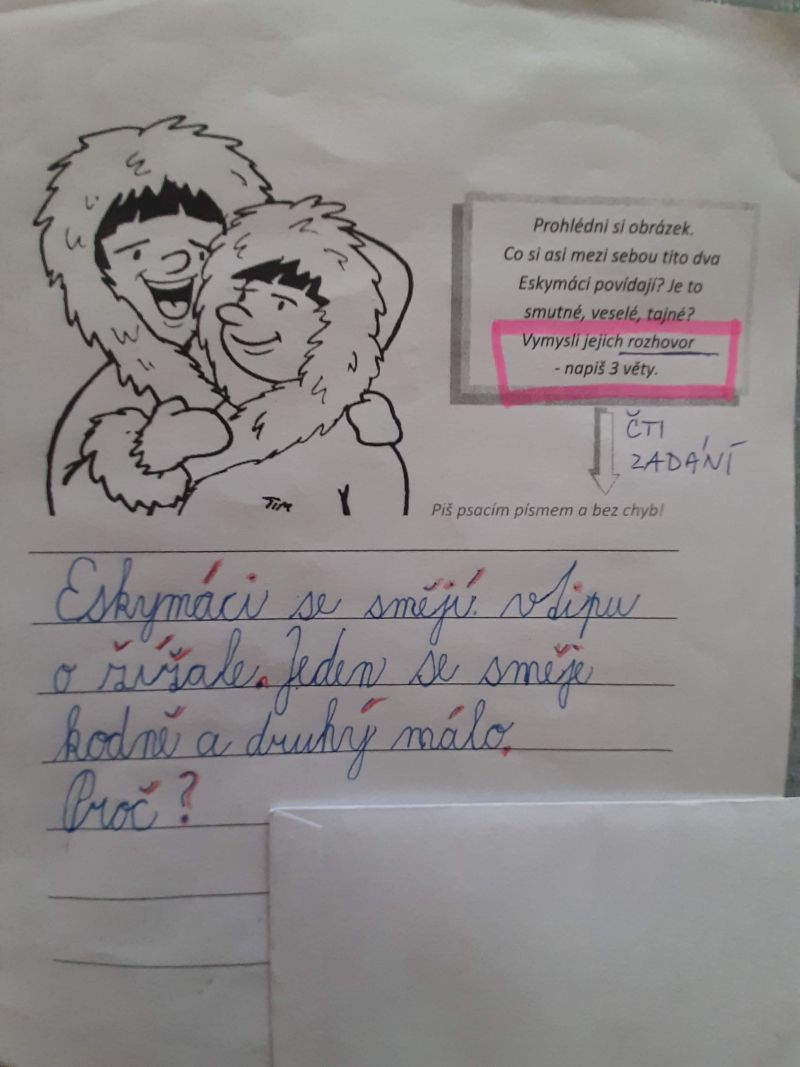 Prohlédni si obrázek.
Co si asi mezi sebou tito dva
Eskymáci povídají? Je to
smutné, veselé, tajné?
Vymysli jejich rozhovor
- napiš 3 věty.
ČTI
ZADÁNÍ
Tim
Piš psacím písmem a bez chyb!
Eskymáci se smějí vtipu
o žížale. Jeden se směje
hodně a druhý málo.
Proč?